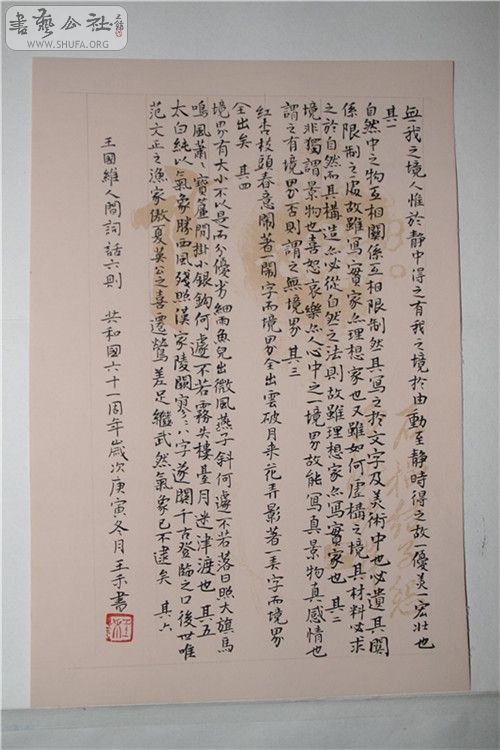 書藝公社
WWW.SHUFA.ORG
無我之境人惟於静中得之有我之境於由動至静時得之故一優美一宏壯也
其一
自然中之物互相關係互相限制然其寫之於文字及美術中也必遺其關
係限制之處故雖寫實家亦理想家也又雖如何虚構之境其材料必求
之於自然而其構造亦必從自然之法則故雖理想家亦寫實家也 其二
境非獨謂景物也喜怒哀樂亦人心中之一境界故能寫真景物真感情也
謂之有境界否則謂之無境界 其三
紅杏枝頭春意鬧著一鬧字而境界全出雲破月来花弄影著一弄字而境界
全出矣 其四
境界有大小不以是而分優劣細雨魚兒出微風燕子斜何遽不若落日照大旗馬
鳴風蕭蕭寶簾閒掛小銀鉤何遽不若霧失樓臺月迷津渡也 其五
太白純以氣象勝西風殘照漢家陵闕寥寥八字遂關千古登臨之口後世唯
范文正之漁家傲夏英公之喜遷鶯差足繼武然氣象已不逮矣 其六
王國維人間詞話六則 共和國六十一周年歲次庚寅冬月王禾書